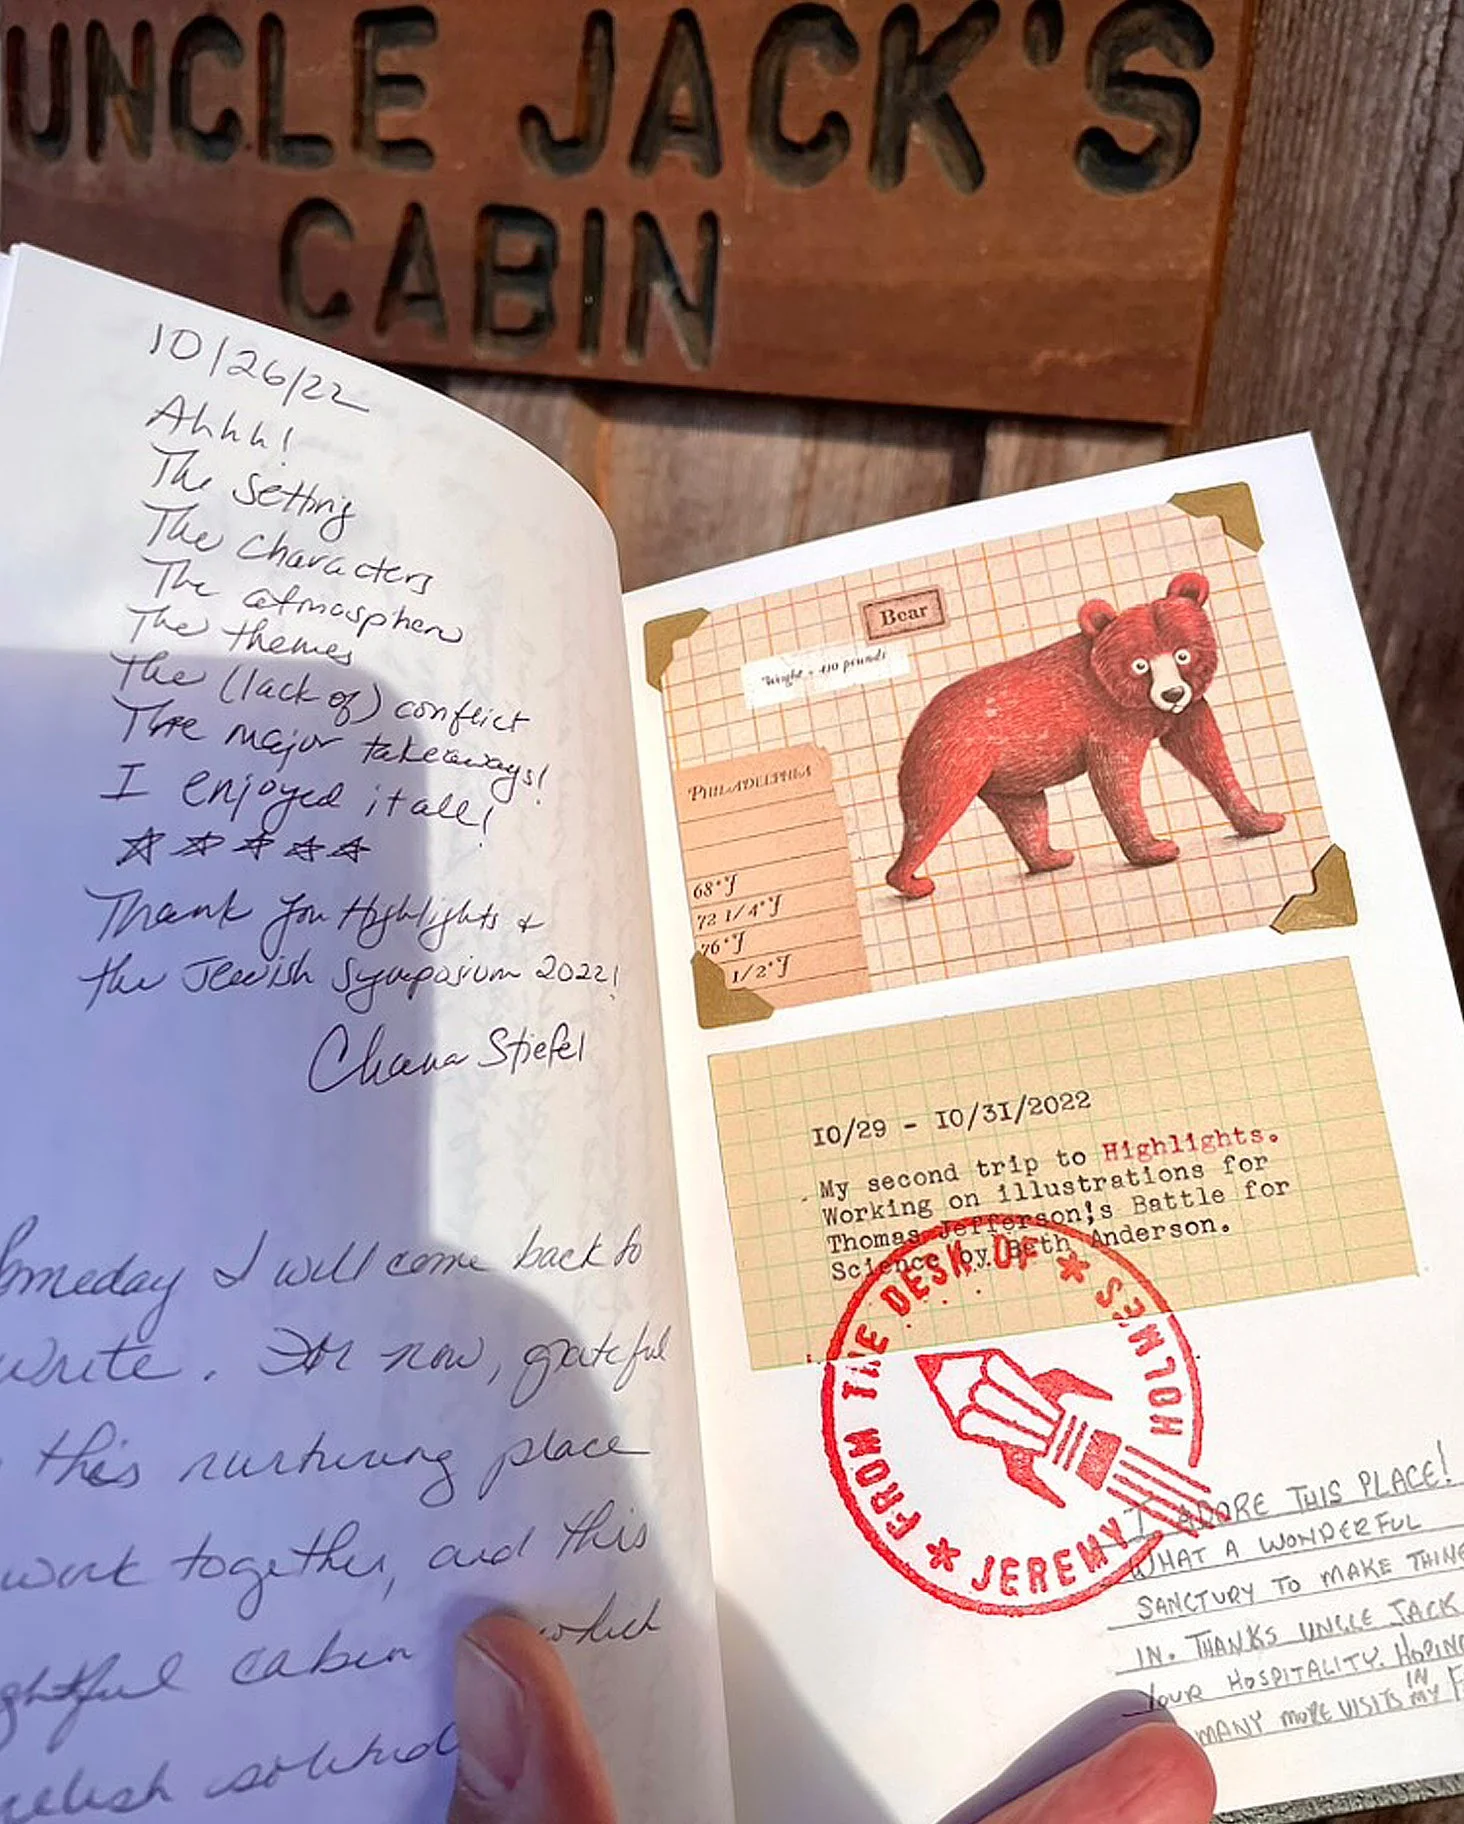 UNCLE JACK'S
CABIN
10/26/22
Ahhh!
The setting
The characters
The atmosphere
The themes
The (lack of) conflict
The major takeaways!
I enjoyed it all!
Thank you Highlights &
the Jewish Symposium 2022!
Chana Stiefel
Someday I will come back to
write. For now, grateful
this nurturing place
work together, and this
cabin which
solitude
Bear
Weight - 410 pounds
PHILADELPHIA
68°F
72 1/4°F
76°F
1/2°F
10/29 - 10/31/2022
My second trip to Highlights.
Working on illustrations for
Thomas Jefferson's Battle for
Science by Beth Anderson.
FROM THE DESK OF * JEREMY HOLMES *
I ADORE THIS PLACE!
WHAT A WONDERFUL
SANCTURY TO MAKE THING
IN. THANKS UNCLE JACK
YOUR HOSPITALITY. HOPING
MANY MORE VISITS IN MY F